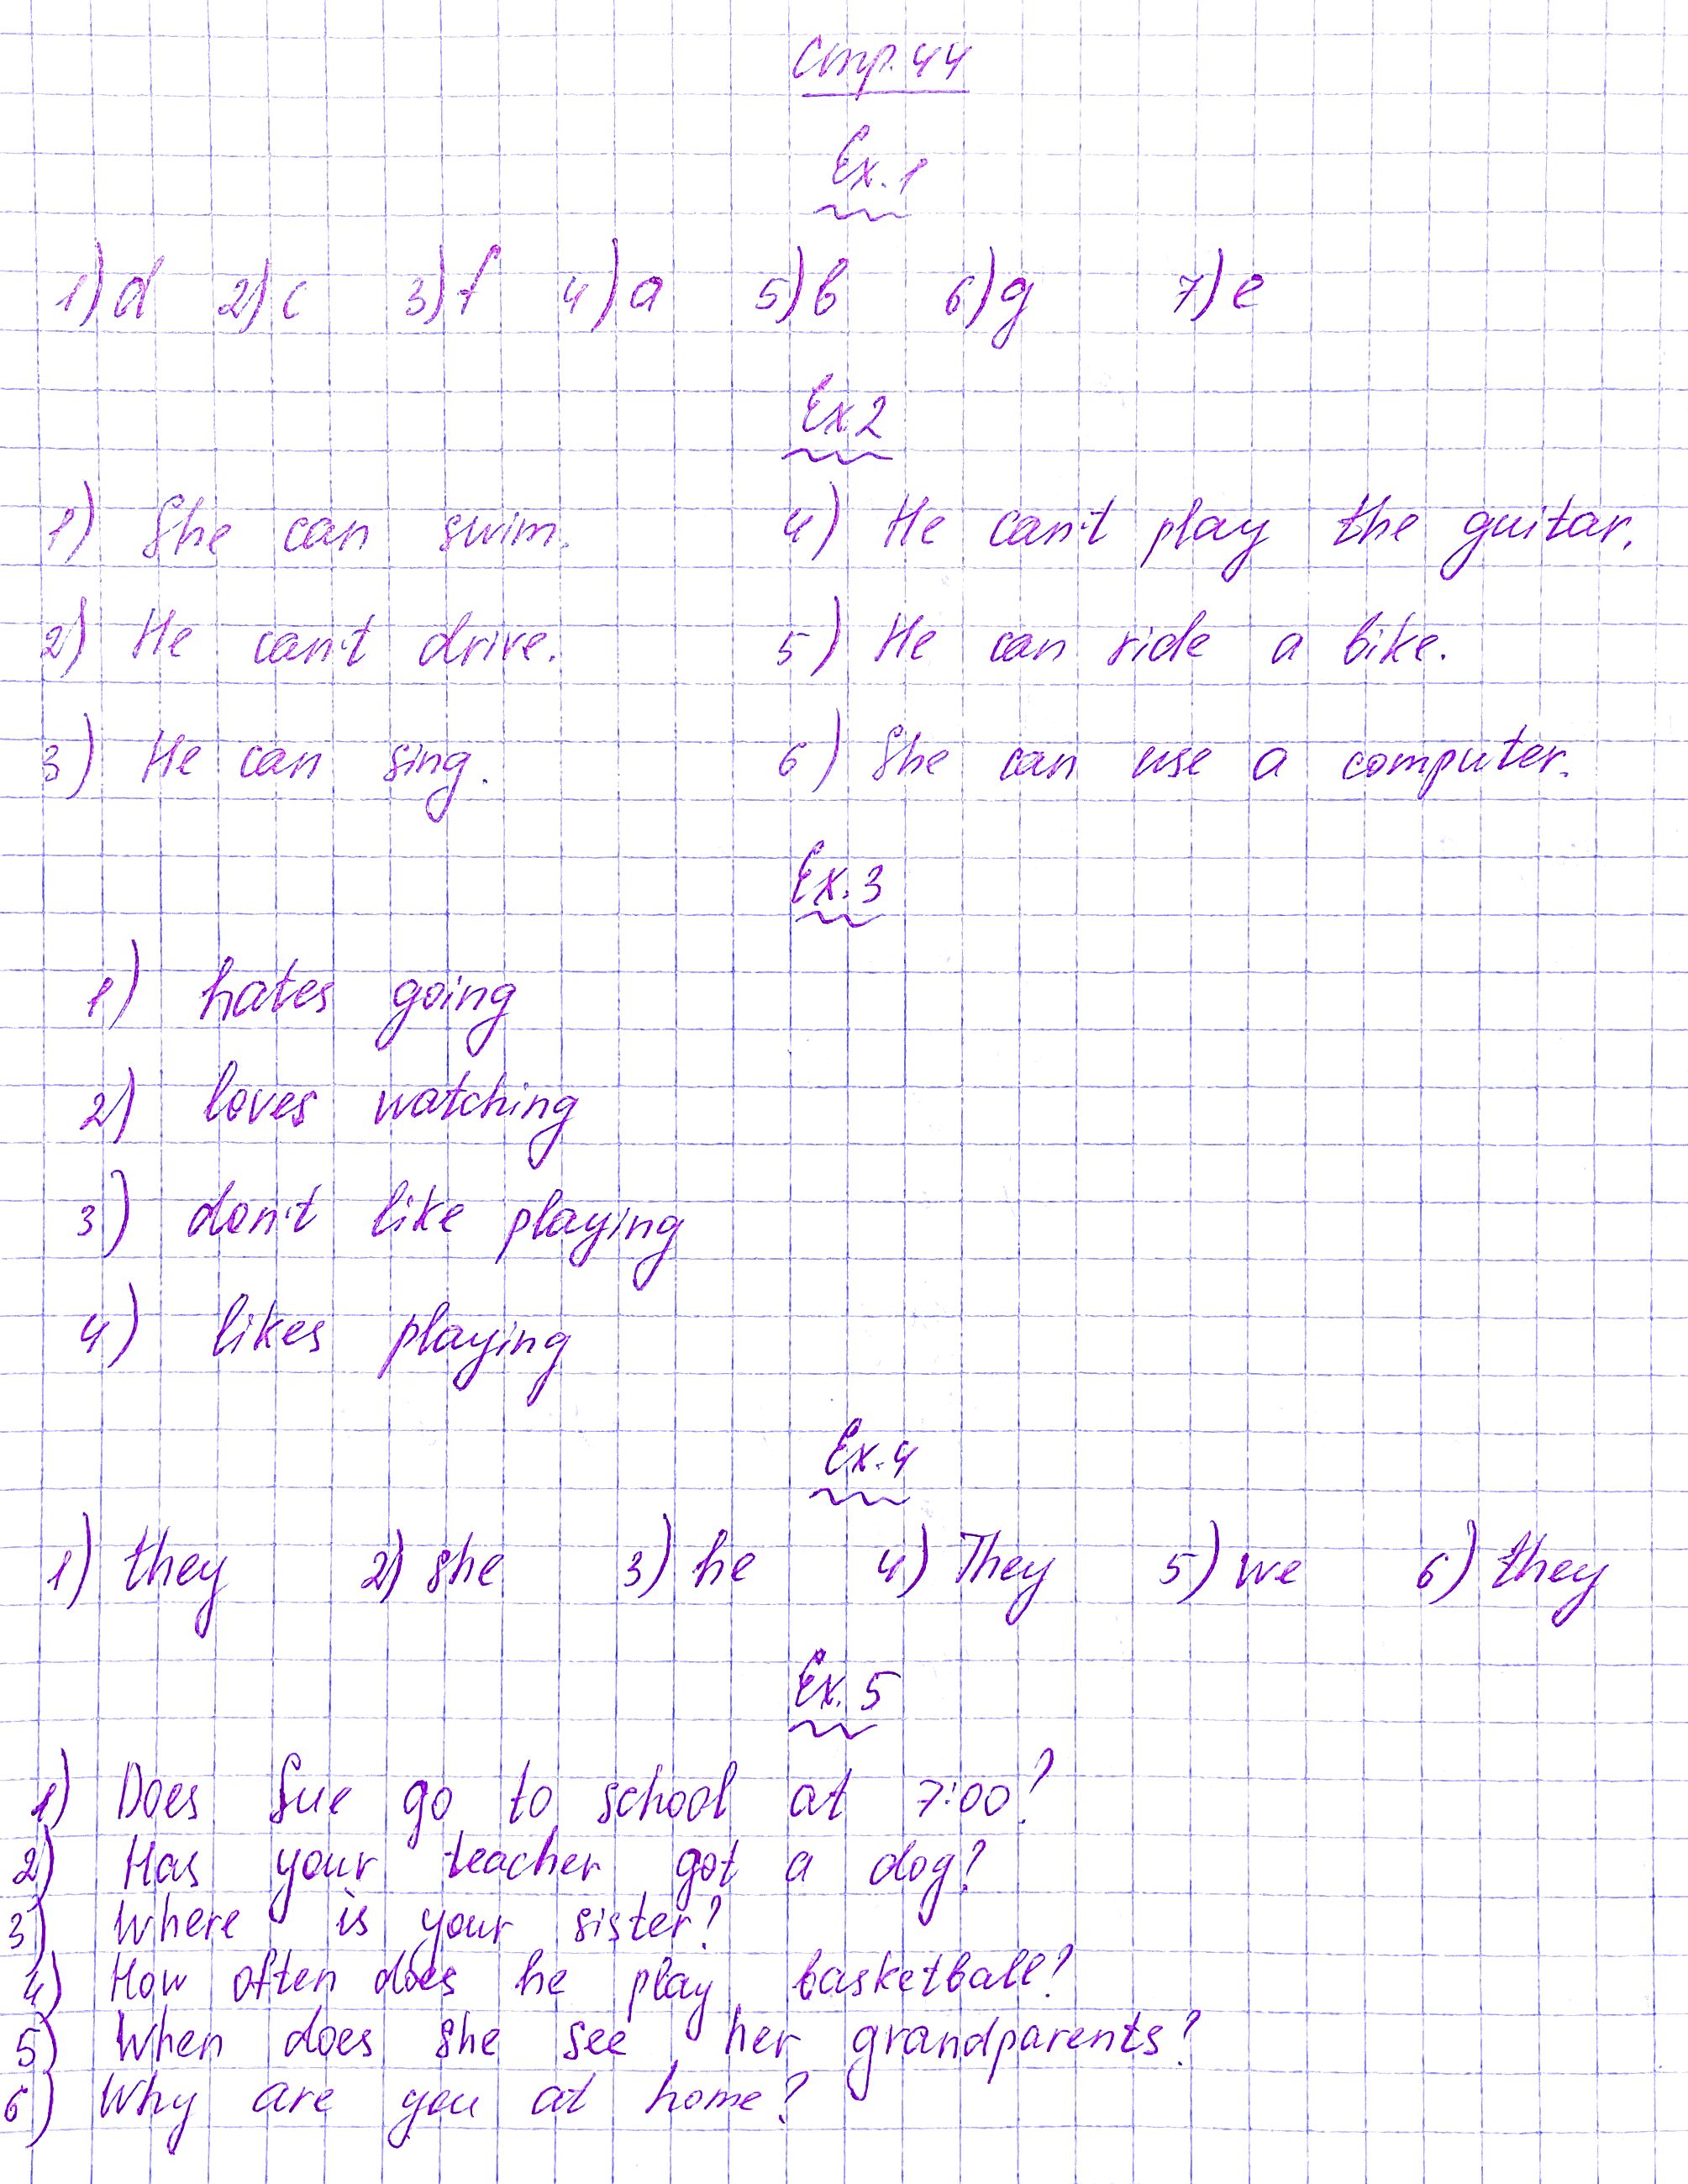 Стр. 44
Ex. 1
1) d 2) c 3) f 4) a 5) b 6) g 7) e
Ex 2
1) She can swim. 4) He can't play the guitar.
2) He can't drive. 5) He can ride a bike.
3) He can sing. 6) She can use a computer.
Ex. 3
1) hates going
2) loves watching
3) don't like playing
4) likes playing
Ex. 4
1) they 2) she 3) he 4) They 5) we 6) they
Ex. 5
1) Does Sue go to school at 7:00?
2) Has your teacher got a dog?
3) Where is your sister?
4) How often does he play basketball?
5) When does she see her grandparents?
6) Why are you at home?